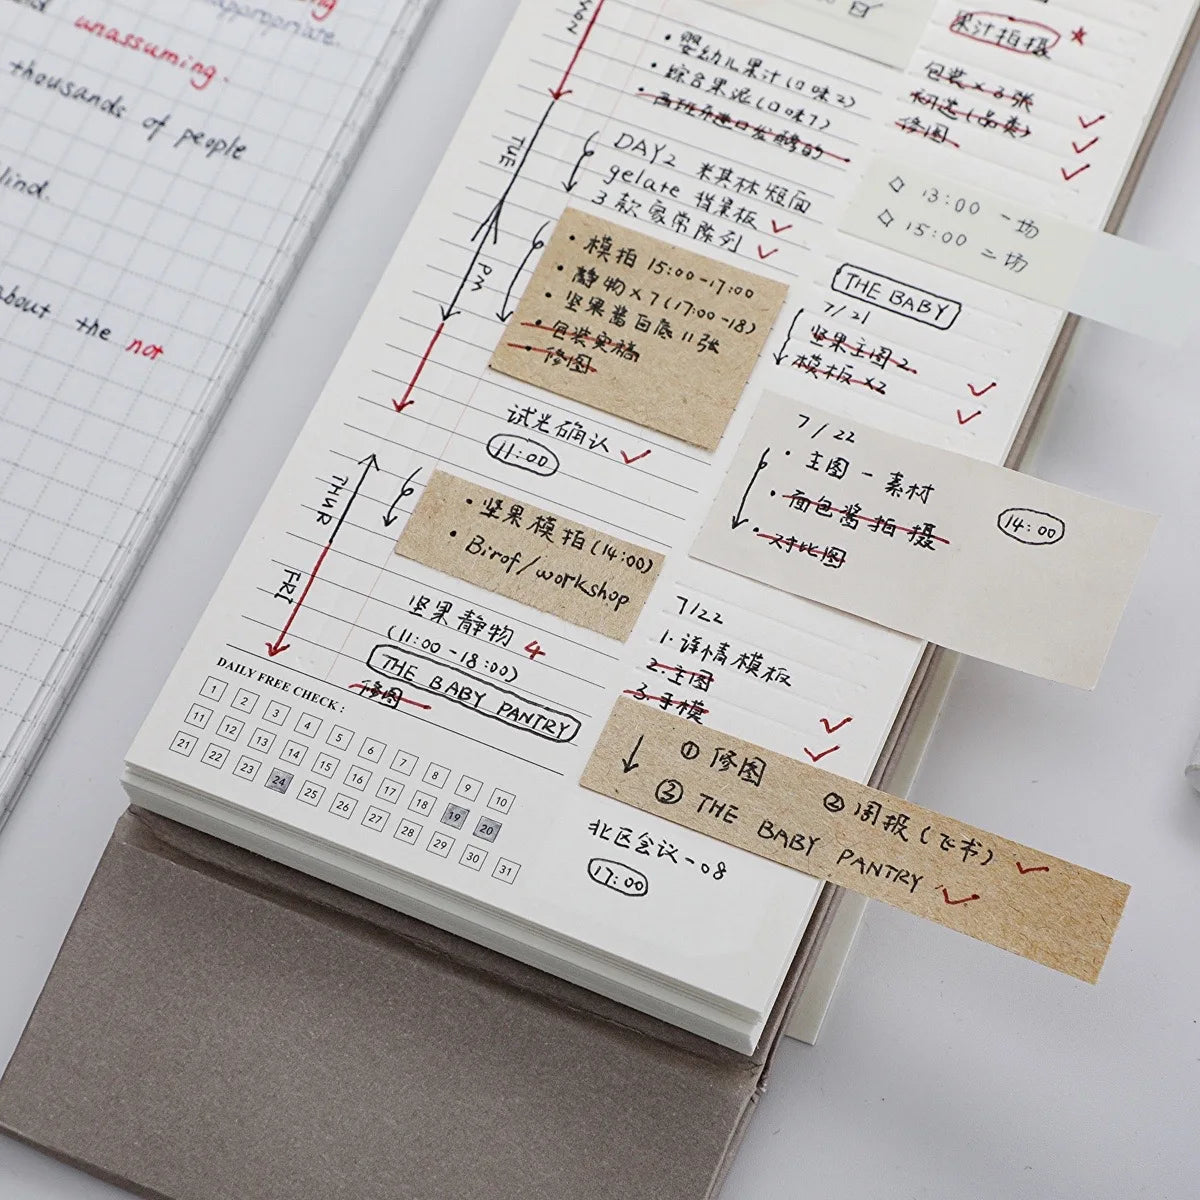 unassuming.
appropriate.
thousands of people
lind.
about the not
TUE
PM
THUR
FRI
• 婴幼儿果汁(口味2)
• 综合果泥(口味7)
DAY2 米其林短面
gelate 背景板
3款家常陈列
• 模拍 15:00-17:00
• 静物×7(17:00-18)
• 坚果酱白底11张
• 包装实稿
• 修图
试光确认
11:00
• 坚果模拍(14:00)
• Birof/workshop
坚果静物 4
(11:00-18:00)
THE BABY PANTRY
修图
DAILY FREE CHECK:
1 2 3 4 5 6 7 8 9 10
11 12 13 14 15 16 17 18 19 20
21 22 23 24 25 26 27 28 29 30 31
果汁拍摄
包装×3张
修图
◇ 13:00 一场
◇ 15:00 二场
THE BABY
7/21
坚果主图2
模板×2
7/22
• 主图一素材
• 面包酱拍摄
14:00
• 对比图
7/22
1. 详情模板
2. 主图
3. 手模
① 修图
② 周报(飞书)
③ THE BABY PANTRY
北区会议-08
17:00